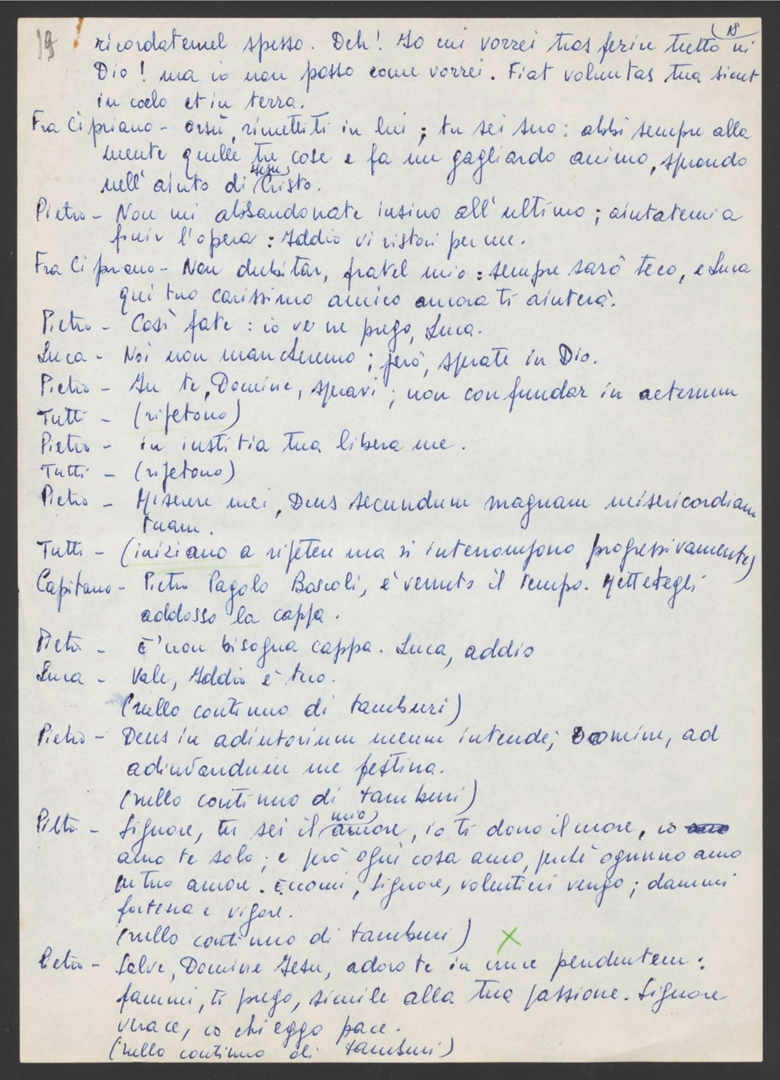 19
18
ricordatemel spesso. Deh! Io mi vorrei trasferire tutto in
Dio! ma io non posso come vorrei. Fiat voluntas tua sicut
in coelo et in terra.
Fra Cipriano - Orsù, rimettiti in lui; tu sei suo: abbi sempre alla
mente quelle tre cose e fa un gagliardo animo, sperando
nell'aiuto di Gesù Cristo.
Pietro - Non mi abbandonate insino all'ultimo; aiutatemi a
finir l'opera: Iddio vi ristori per me.
Fra Cipriano - Non dubitar, fratel mio: sempre sarò teco, e Luca
qui tuo carissimo amico ancora ti aiuterà.
Pietro - Così fate: io ve ne prego, Luca.
Luca - Noi non mancheremo; però, sperate in Dio.
Pietro - In te, Domine, speravi; non confundar in aeternum
Tutti - (ripetono)
Pietro - in iustitia tua libera me.
Tutti - (ripetono)
Pietro - Miserere mei, Deus secundum magnam misericordiam
tuam.
Tutti - (iniziano a ripetere ma si interrompono progressivamente)
Capitano - Pietro Pagolo Boscoli, è venuto il tempo. Mettetegli
addosso la cappa.
Pietro - E' non bisogna cappa. Luca, addio
Luca - Vale, Iddio è teco.
(rullo continuo di tamburi)
Pietro - Deus in adiutorium meum intende; Domine, ad
adiuvandum me festina.
(rullo continuo di tamburi)
Pietro - Signore, tu sei il mio amore, io ti dono il cuore, io
amo te solo; e però ogni cosa amo, perché ognuno amo
per tuo amore. Eccomi, Signore, volentieri vengo; dammi
fortezza e vigore.
(rullo continuo di tamburi) X
Pietro - Salve, Domine Iesu, adoro te in cruce pendentem:
fammi, ti prego, simile alla tua passione. Signore
verace, io chieggo pace.
(rullo continuo di tamburi)